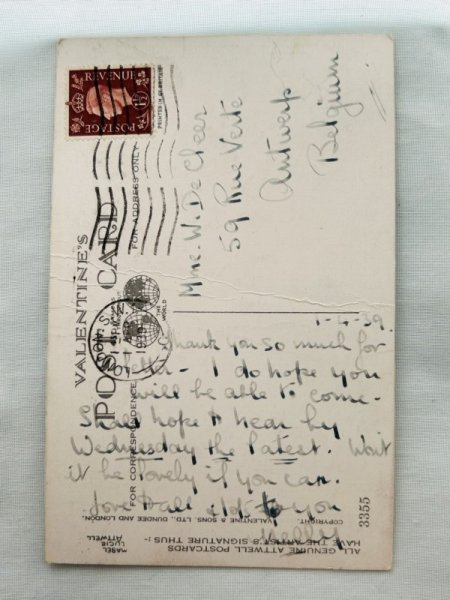 REVENUE
1½D
POSTAGE
PRINTED IN GT BRITAIN
VALENTINE'S
POST CARD
FOR ADDRESS ONLY
THE WORLD
FOR CORRESPONDENCE
Mme. W. De Cleer
59 Rue Verte
Antwerp
Belgium
1-4-39.
Thank you so much for
letter - I do hope you
will be able to come -
Shall hope to hear by
Wednesday the latest. Won't
it be lovely if you can.
Love to all
to you
3355
COPYRIGHT.
VALENTINE & SONS LTD. DUNDEE AND LONDON.
ALL GENUINE ATTWELL POSTCARDS
HAVE THE ARTIST'S SIGNATURE THUS :-
MABEL
LUCIE
ATTWELL